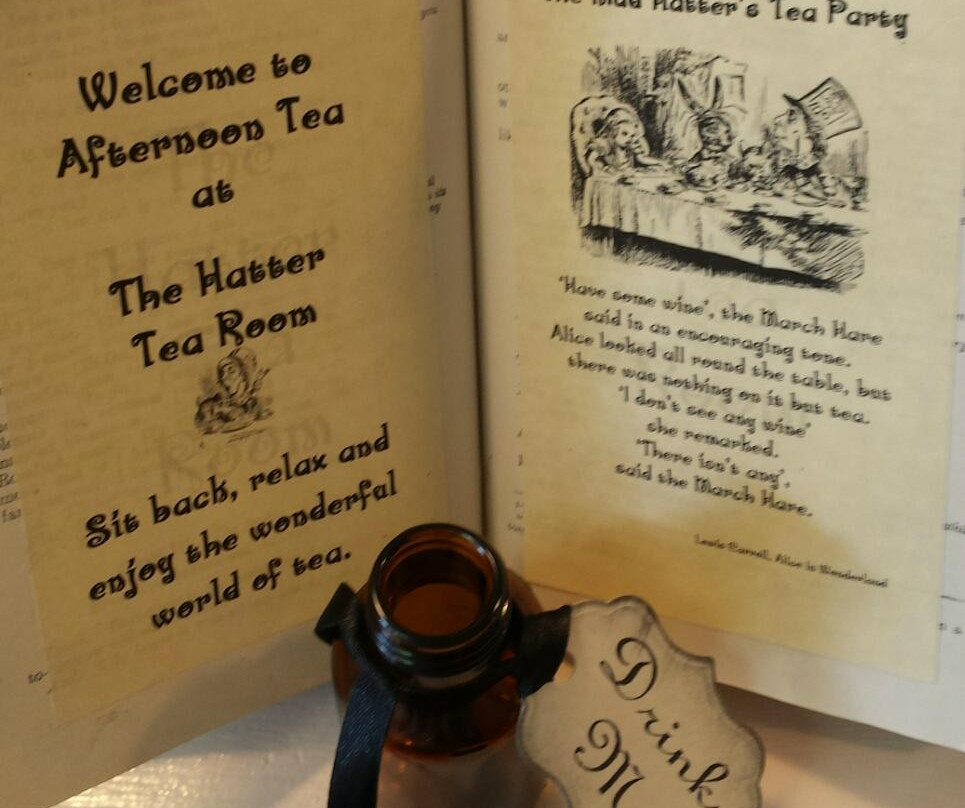 Welcome to
Afternoon Tea
at
The Hatter
Tea Room
Sit back, relax and
enjoy the wonderful
world of tea.
Mad Hatter's Tea Party
'Have some wine', the March Hare
said in an encouraging tone.
Alice looked all round the table, but
there was nothing on it but tea.
'I don't see any wine'
she remarked.
'There isn't any',
said the March Hare.
Lewis Carroll, Alice in Wonderland
Drink
M